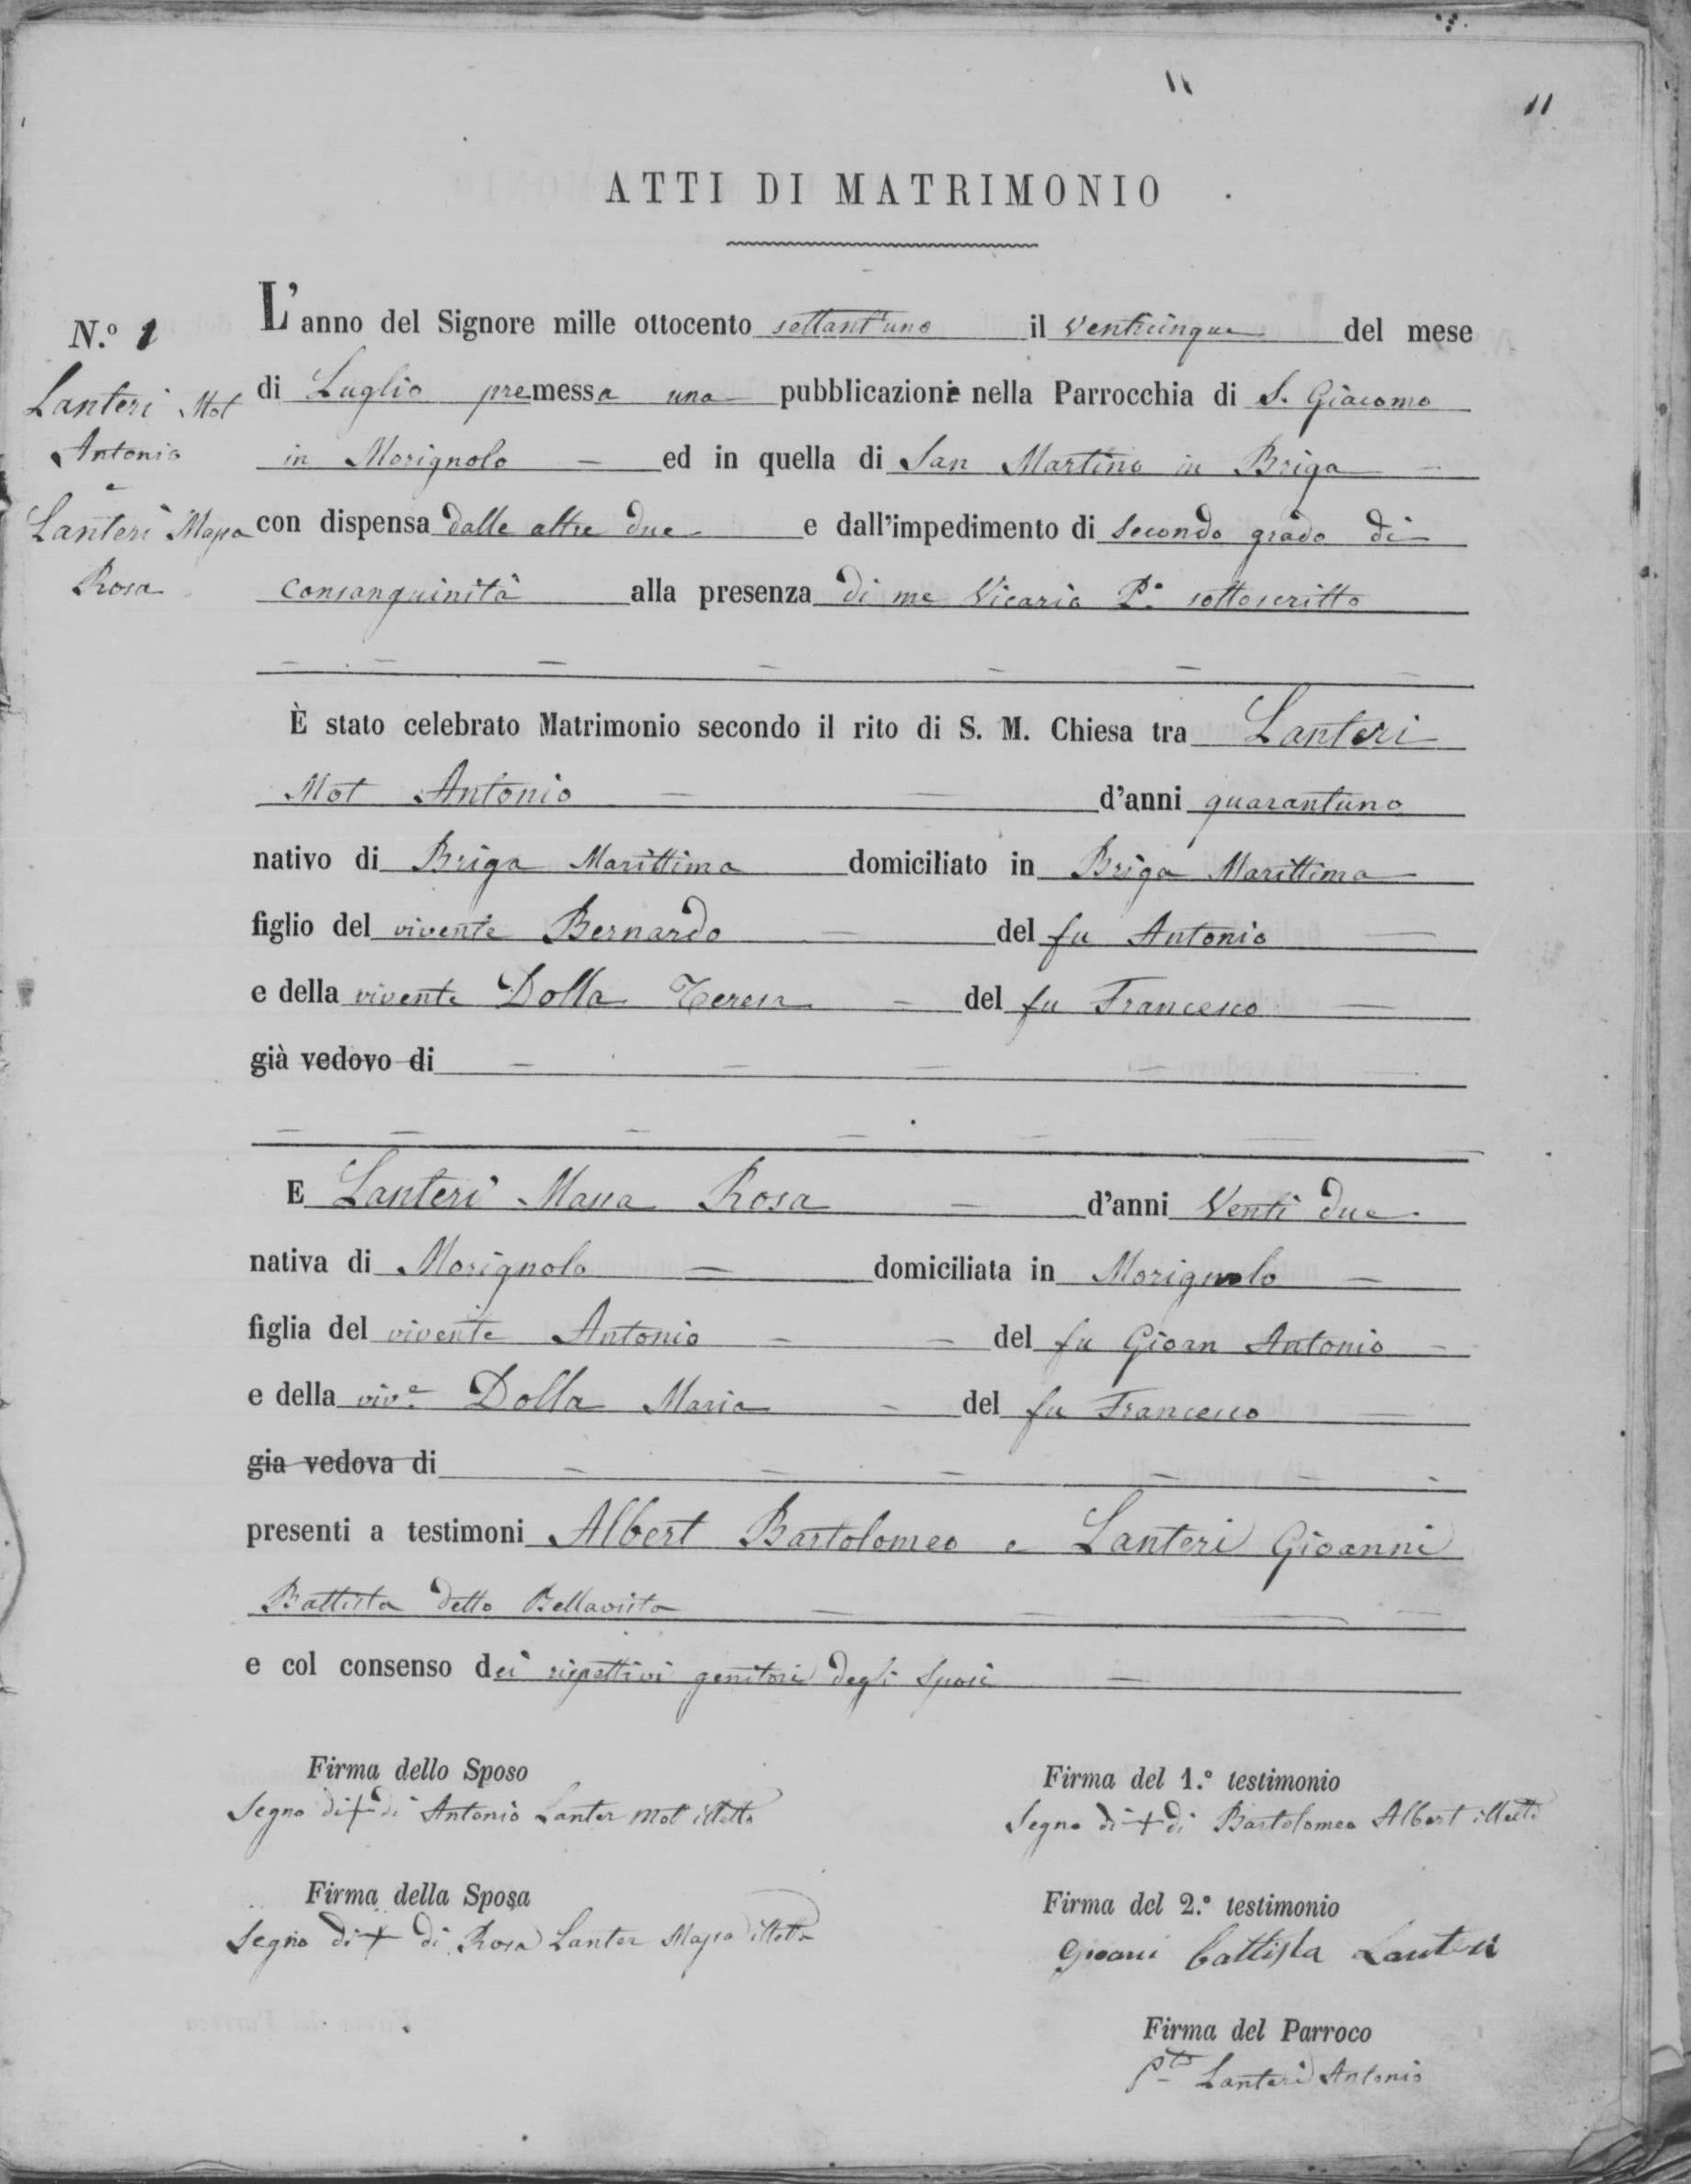 11
ATTI DI MATRIMONIO
N.º 1
Lanteri Mot
Antonio
e
Lanteri Massa
Rosa
L'anno del Signore mille ottocento settant'uno il venticinque del mese
di Luglio premessa una pubblicazione nella Parrocchia di S. Giacomo
in Morignolo — ed in quella di San Martino in Briga —
con dispensa dalle altre due e dall'impedimento di secondo grado di
consanguinità alla presenza di me Vicario P.º sottoscritto
È stato celebrato Matrimonio secondo il rito di S. M. Chiesa tra Lanteri
Mot Antonio — — d'anni quarantuno
nativo di Briga Marittima domiciliato in Briga Marittima
figlio del vivente Bernardo — del fu Antonio —
e della vivente Dolla Teresa — del fu Francesco —
già vedovo di — — — —
E Lanteri Massa Rosa — d'anni Venti due
nativa di Morignolo — domiciliata in Morignolo —
figlia del vivente Antonio — — del fu Gioan Antonio —
e della viv.e Dolla Maria — del fu Francesco —
gia vedova di — — — — — —
presenti a testimoni Albert Bartolomeo e Lanteri Gioanni
Battista detto Bellavista — — — —
e col consenso dei rispettivi genitori degli sposi —
Firma dello Sposo
Segno di + di Antonio Lanter Mot illetto
Firma della Sposa
Segno di + di Rosa Lanter Massa illetta
Firma del 1.º testimonio
Segno di + di Bartolomeo Albert illetto
Firma del 2.º testimonio
Gioani battista Lanteri
Firma del Parroco
P.te Lanteri Antonio